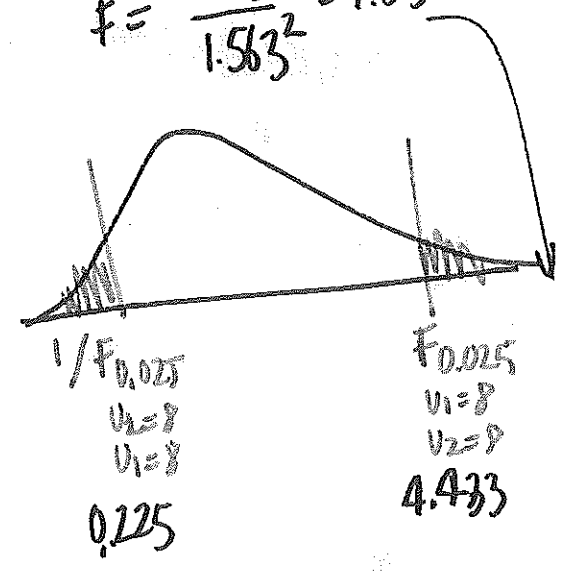 F =
1.563²
1/F0.025
υ2=8
υ1=8
0.225
F0.025
υ1=8
υ2=8
4.433